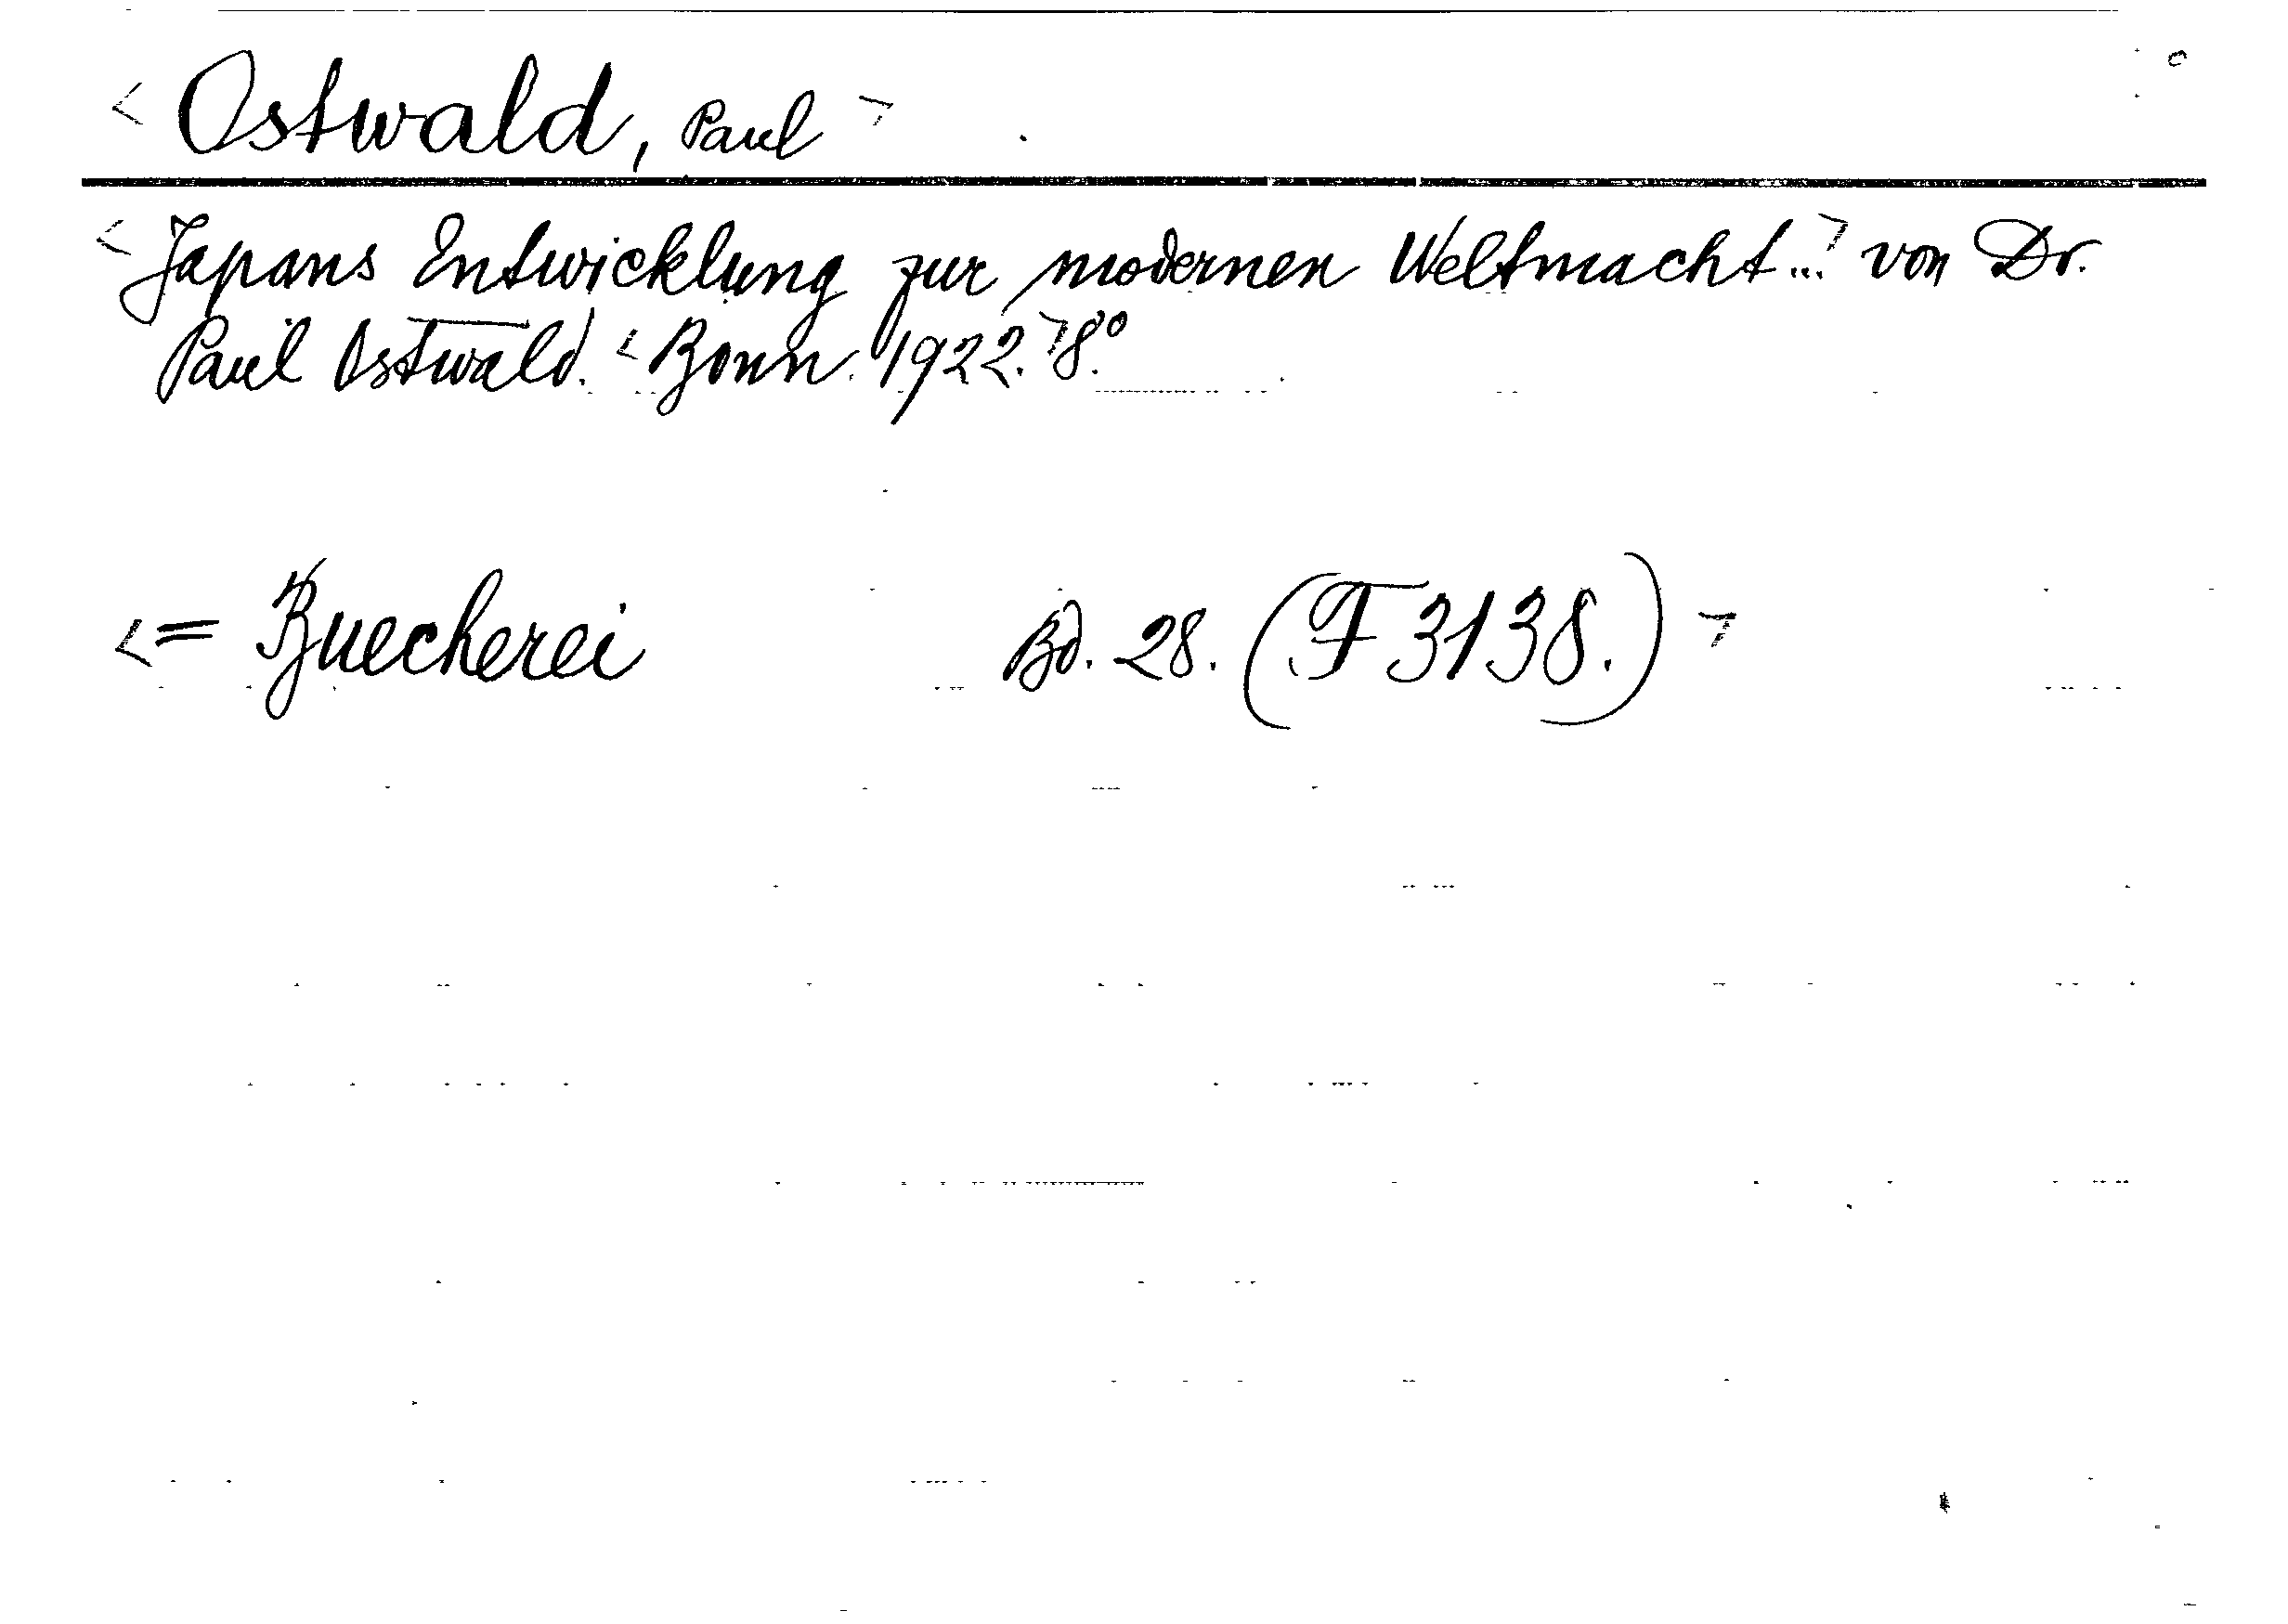 < Ostwald, Paul >
< Japans Entwicklung zur modernen Weltmacht...> von Dr.
Paul Ostwald. < Bonn. 1922. > 8°.
< = Buecherei Bd. 28. (F 3138.) >